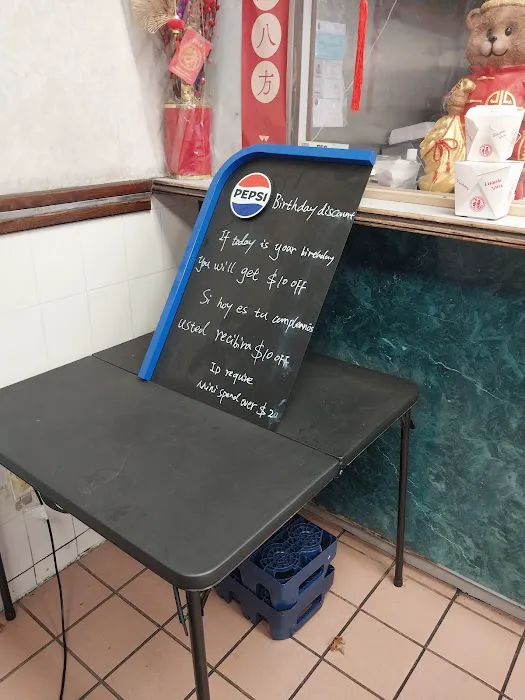 八
方
PEPSI
Birthday discount
If today is your birthday
You will get $10 off
Si hoy es tu cumpleaños
usted recibira $10 off
ID require
mini spend over $20